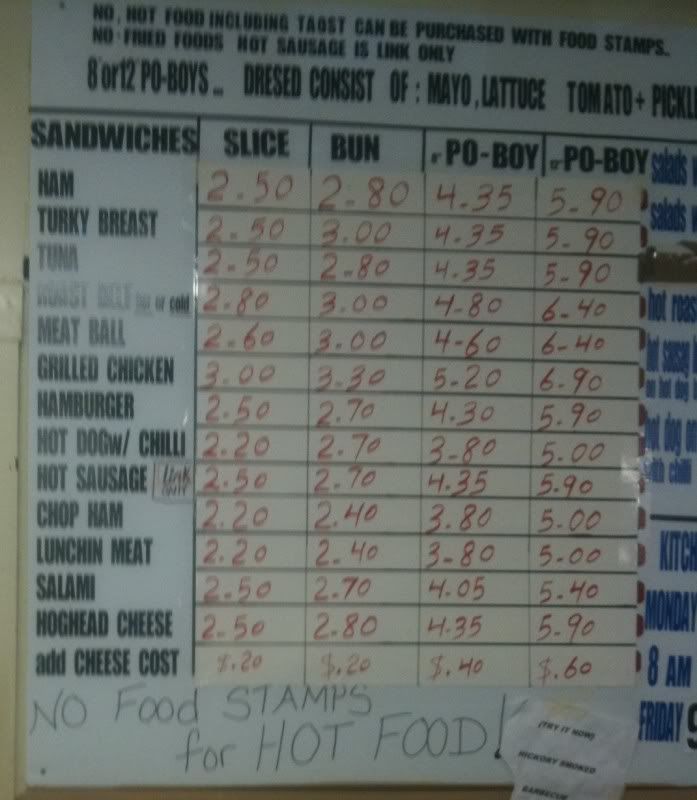 NO, HOT FOOD INCLUDING TAOST CAN BE PURCHASED WITH FOOD STAMPS.
NO FRIED FOODS HOT SAUSAGE IS LINK ONLY
8"or12 PO-BOYS... DRESED CONSIST OF : MAYO, LATTUCE TOMATO + PICKLE
SANDWICHES SLICE BUN PO-BOY PO-BOY
HAM 2.50 2.80 4.35 5.90
TURKY BREAST 2.50 3.00 4.35 5.90
TUNA 2.50 2.80 4.35 5.90
ROAST BEEF hot or cold 2.80 3.00 4.80 6.40
MEAT BALL 2.60 3.00 4.60 6.40
GRILLED CHICKEN 3.00 3.30 5.20 6.90
HAMBURGER 2.50 2.70 4.30 5.90
HOT DOGw/ CHILLI 2.20 2.70 3.80 5.00
HOT SAUSAGE LINK ONLY 2.50 2.70 4.35 5.90
CHOP HAM 2.20 2.40 3.80 5.00
LUNCHIN MEAT 2.20 2.40 3.80 5.00
SALAMI 2.50 2.70 4.05 5.40
HOGHEAD CHEESE 2.50 2.80 4.35 5.90
add CHEESE COST $.20 $.20 $.40 $.60
NO Food STAMPS
for HOT FOOD!
(TRY IT NOW)
HICKORY SMOKED
BARBECUE
salads
salads
hot roas
hot
on hot dog
hot dog
with chilli
KITCH
MONDAY
8 AM
FRIDAY 9